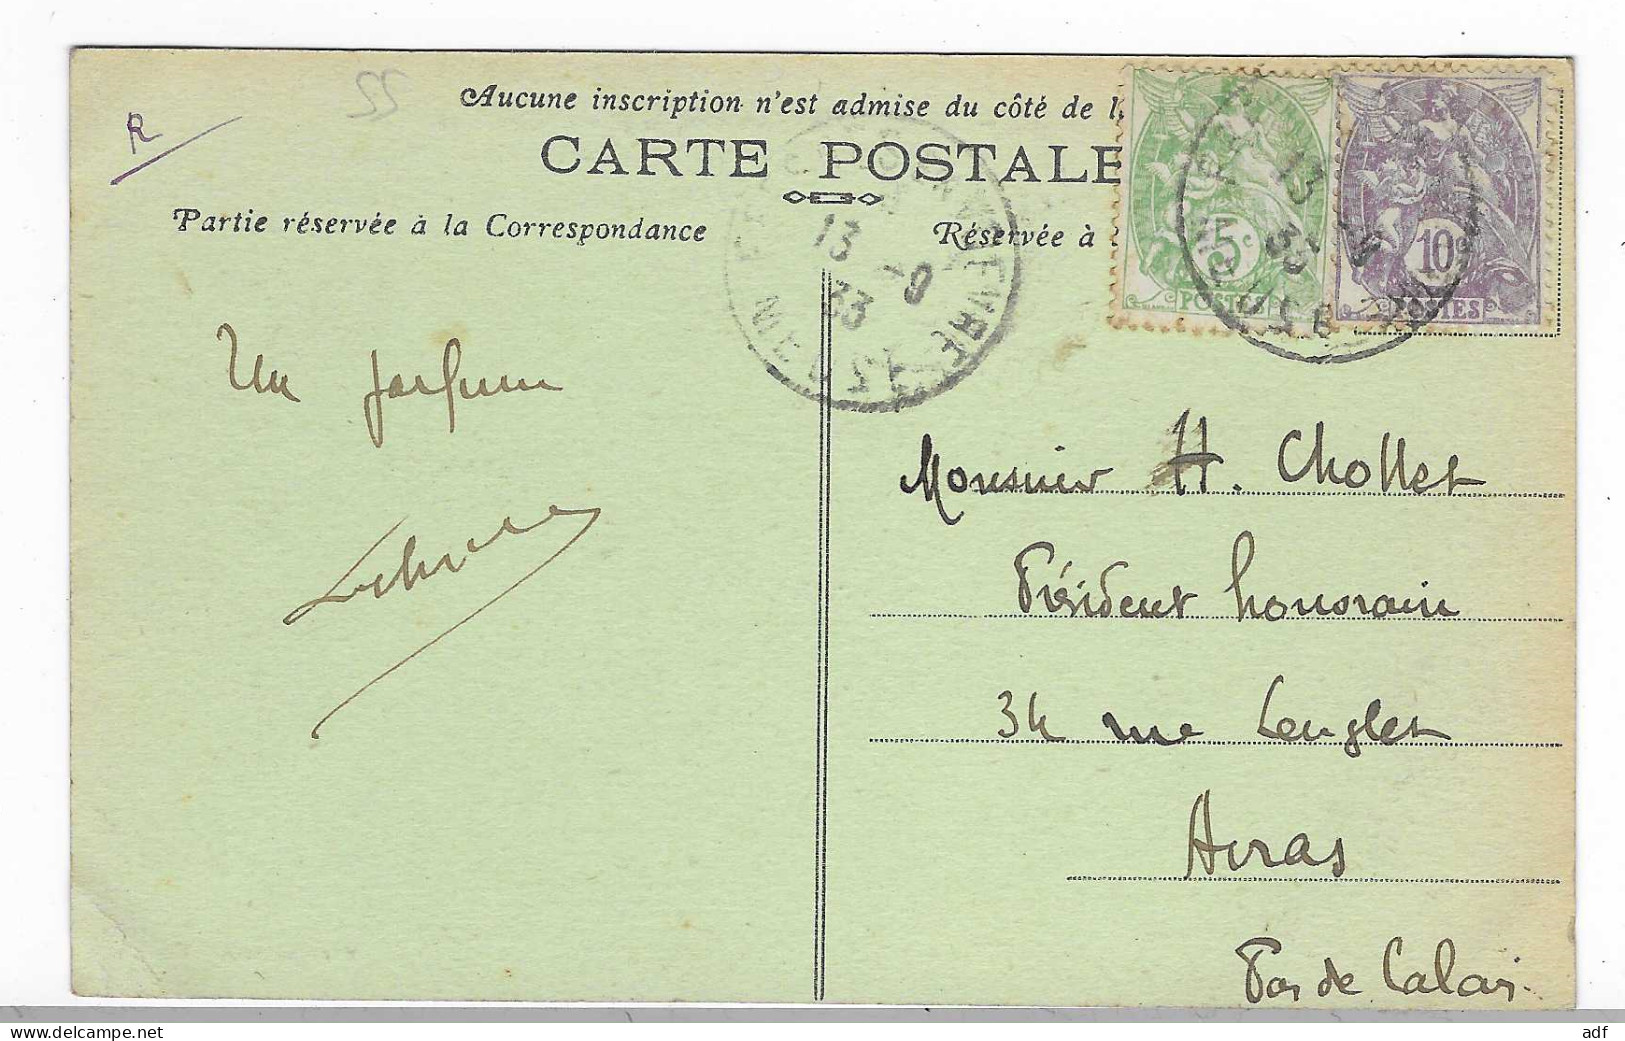 55
R
Aucune inscription n'est admise du côté de l
CARTE POSTALE
Partie réservée à la Correspondance
Réservée à
5c
POSTES
10c
POSTES
13
-9
33
13
33
Un parfum
Monsieur H. Chollet
Président honoraire
34 rue Lenglet
Arras
Pas de Calais.
www.delcampe.net
adf